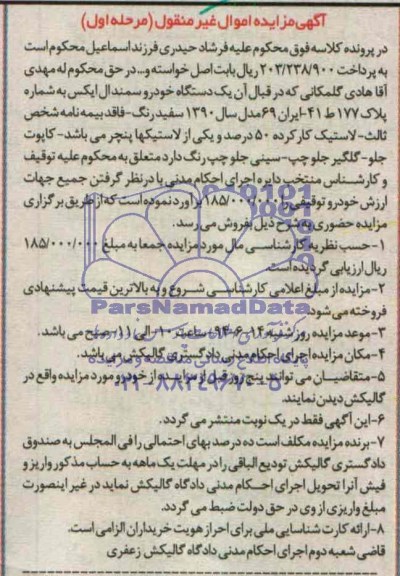 آگهی مزایده اموال غیر منقول (مرحله اول)
در پرونده کلاسه فوق محکوم علیه فرشاد حیدری فرزند اسماعیل محکوم است
به پرداخت ۲۰۳/۲۳۸/۹۰۰ ریال بابت اصل خواسته و... در حق محکوم له مهدی
آقا هادی گلمکانی که در قبال آن یک دستگاه خودرو سمندال ایکس به شماره
پلاک ۱۷۷ ط ۴۱- ایران ۶۹ مدل سال ۱۳۹۰ سفید رنگ- فاقد بیمه نامه شخص
ثالث- لاستیک کار کرده ۵۰ درصد و یکی از لاستیکها پنچر می باشد- کاپوت
جلو- گلگیر جلو چپ- سینی جلو چپ رنگ دارد متعلق به محکوم علیه توقیف
و کارشناس منتخب دایره اجرای احکام مدنی با در نظر گرفتن جمیع جهات
ارزش خودرو توقیفی را ۱۸۵/۰۰۰/۰۰۰ برآورد نموده است که از طریق برگزاری
مزایده حضوری به شرح ذیل بفروش می رسد.
۱- حسب نظریه کارشناسی مال مورد مزایده جمعا به مبلغ ۱۸۵/۰۰۰/۰۰۰
ریال ارزیابی گردیده است
۲- مزایده از مبلغ اعلامی کارشناسی شروع و به بالاترین قیمت پیشنهادی
فروخته می شود
ParsNamadData
۳- موعد مزایده روز شنبه ۱۴-۶-۹۴ ساعت ۱۰ الی ۱۱ صبح می باشد.
۴- مکان مزایده اجرای احکام مدنی دادگستری گالیکش می باشد.
۵- متقاضیان می توانند پنج روز قبل از مزایده از خودرو مورد مزایده واقع در
۰۲۱-۸۸۳۴۹۶۷۰-۵
گالیکش دیدن نمایند.
۶- این آگهی فقط در یک نوبت منتشر می گردد.
۷- برنده مزایده مکلف است ده درصد بهای احتمالی را فی المجلس به صندوق
دادگستری گالیکش تودیع الباقی را در مهلت یک ماهه به حساب مذکور واریز و
فیش آنرا تحویل اجرای احکام مدنی دادگاه گالیکش نماید در غیر اینصورت
مبلغ واریزی از وی در حق دولت ضبط می گردد.
۸- ارائه کارت شناسایی ملی برای احراز هویت خریداران الزامی است.
قاضی شعبه دوم اجرای احکام مدنی دادگاه گالیکش زعفری